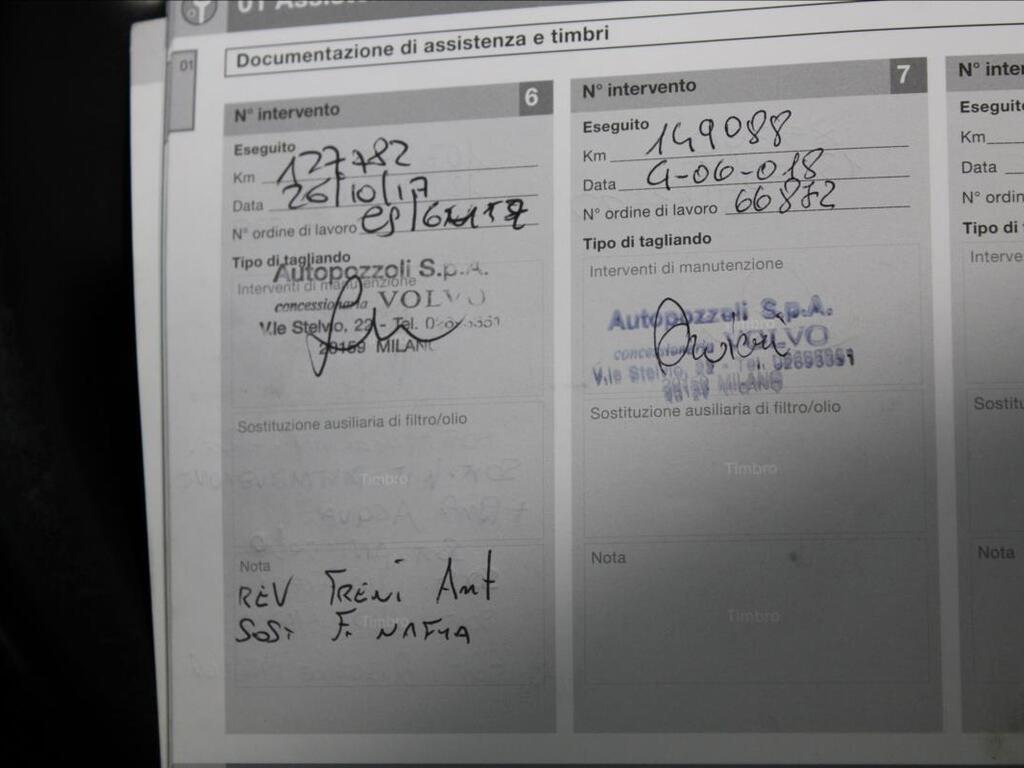 01
Documentazione di assistenza e timbri
N° intervento 6
Eseguito
Km 127782
Data 26/10/17
N° ordine di lavoro
Tipo di tagliando
Interventi di manutenzione
Autopozzoli S.p.A.
concessionaria VOLVO
V.le Stelvio, 22 - Tel.
20159 MILANO
Sostituzione ausiliaria di filtro/olio
Timbro
Nota
REV FRENI Ant
Timbro
SOST F. NAFTA
N° intervento 7
Eseguito
Km 149088
Data 4-06-018
N° ordine di lavoro 66872
Tipo di tagliando
Interventi di manutenzione
Timbro
Autopozzoli S.p.A.
concessionaria VOLVO
V.le Stelvio, Tel.
MILANO
Sostituzione ausiliaria di filtro/olio
Timbro
Nota
Timbro
N° inter
Eseguito
Km
Data
N° ordin
Tipo di
Interve
Sostitu
Nota